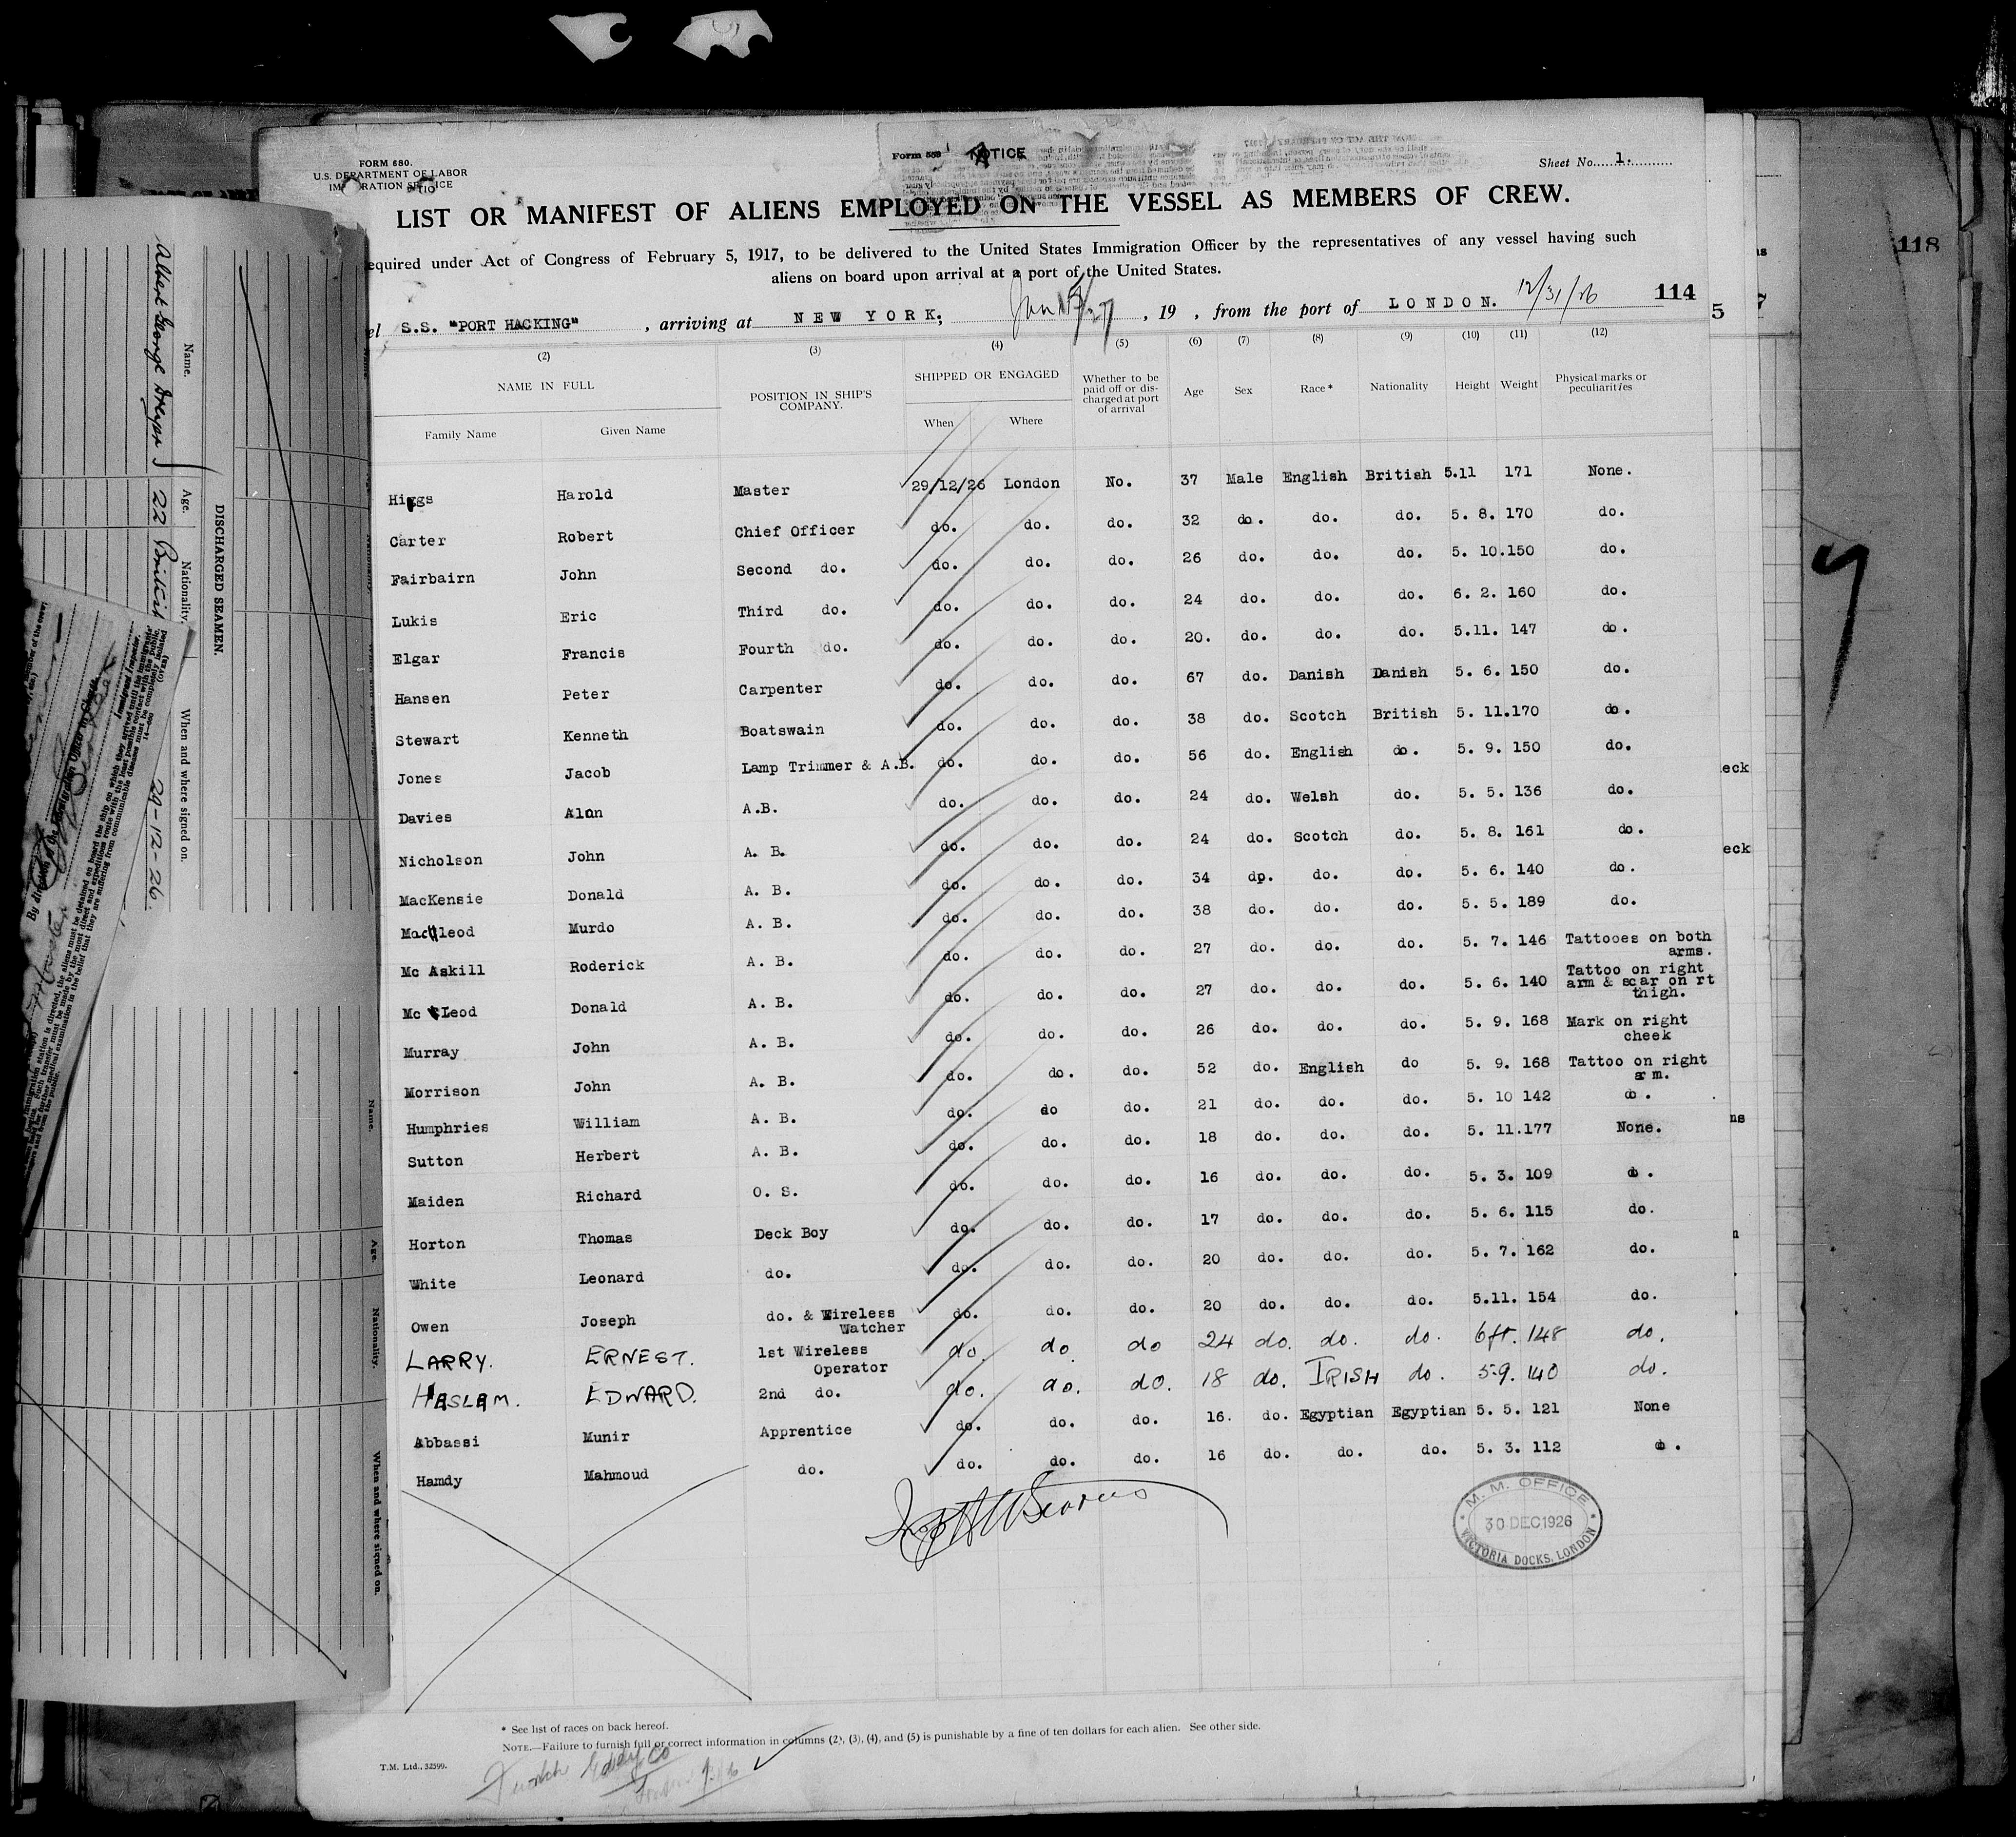 FORM 680.
U.S. DEPARTMENT OF LABOR
Form 559 NOTICE
Sheet No. 1.
LIST OR MANIFEST OF ALIENS EMPLOYED ON THE VESSEL AS MEMBERS OF CREW.
equired under Act of Congress of February 5, 1917, to be delivered to the United States Immigration Officer by the representatives of any vessel having such
aliens on board upon arrival at a port of the United States.
el S.S. "PORT HACKING" , arriving at NEW YORK; , 19 , from the port of LONDON. 12/31/26 114
(2) (3) (4) (5) (6) (7) (8) (9) (10) (11) (12)
NAME IN FULL POSITION IN SHIP'S COMPANY. SHIPPED OR ENGAGED Whether to be paid off or discharged at port of arrival Age Sex Race* Nationality Height Weight Physical marks or peculiarities
Family Name Given Name When Where
Higgs Harold Master 29/12/26 London No. 37 Male English British 5.11 171 None.
Carter Robert Chief Officer do. do. do. 32 do. do. do. 5. 8. 170 do.
Fairbairn John Second do. do. do. do. 26 do. do. do. 5. 10. 150 do.
Lukis Eric Third do. do. do. do. 24 do. do. do. 6. 2. 160 do.
Elgar Francis Fourth do. do. do. do. 20. do. do. do. 5.11. 147 do.
Hansen Peter Carpenter do. do. do. 67 do. Danish Danish 5. 6. 150 do.
Stewart Kenneth Boatswain do. do. do. 38 do. Scotch British 5. 11. 170 do.
Jones Jacob Lamp Trimmer & A.B. do. do. do. 56 do. English do. 5. 9. 150 do.
Davies Alan A.B. do. do. do. 24 do. Welsh do. 5. 5. 136 do.
Nicholson John A. B. do. do. do. 24 do. Scotch do. 5. 8. 161 do.
MacKensie Donald A. B. do. do. do. 34 do. do. do. 5. 6. 140 do.
Macleod Murdo A. B. do. do. do. 38 do. do. do. 5. 5. 189 do.
Mc Askill Roderick A. B. do. do. do. 27 do. do. do. 5. 7. 146 Tattooes on both arms.
Mc Leod Donald A. B. do. do. do. 27 do. do. do. 5. 6. 140 Tattoo on right arm & scar on rt thigh.
Murray John A. B. do. do. do. 26 do. do. do. 5. 9. 168 Mark on right cheek
Morrison John A. B. do. do. do. 52 do. English do 5. 9. 168 Tattoo on right arm.
Humphries William A. B. do. do do. 21 do. do. do. 5. 10 142 do.
Sutton Herbert A. B. do. do. do. 18 do. do. do. 5. 11. 177 None.
Maiden Richard O. S. do. do. do. 16 do. do. do. 5. 3. 109 do.
Horton Thomas Deck Boy do. do. do. 17 do. do. do. 5. 6. 115 do.
White Leonard do. do. do. do. 20 do. do. do. 5. 7. 162 do.
Owen Joseph do. & Wireless Watcher do. do. do. 20 do. do. do. 5.11. 154 do.
LARRY. ERNEST. 1st Wireless Operator do. do. do 24 do. do. do. 6ft. 148 do.
HASLAM. EDWARD. 2nd do. do. do. do. 18 do. IRISH do. 5.9. 140 do.
Abbassi Munir Apprentice do. do. do. 16. do. Egyptian Egyptian 5. 5. 121 None
Hamdy Mahmoud do. do. do. do. 16 do. do. do. 5. 3. 112 do.
M. M. OFFICE
30 DEC 1926
VICTORIA DOCKS, LONDON
* See list of races on back hereof.
NOTE.—Failure to furnish full or correct information in columns (2), (3), (4), and (5) is punishable by a fine of ten dollars for each alien. See other side.
T.M. Ltd., 52599.
DISCHARGED SEAMEN.
Name. Age. Nationality. When and where signed on.
Albert George 22 British 29-12-26.
Name. Age. Nationality. When and where signed on.
118
5
eck
eck